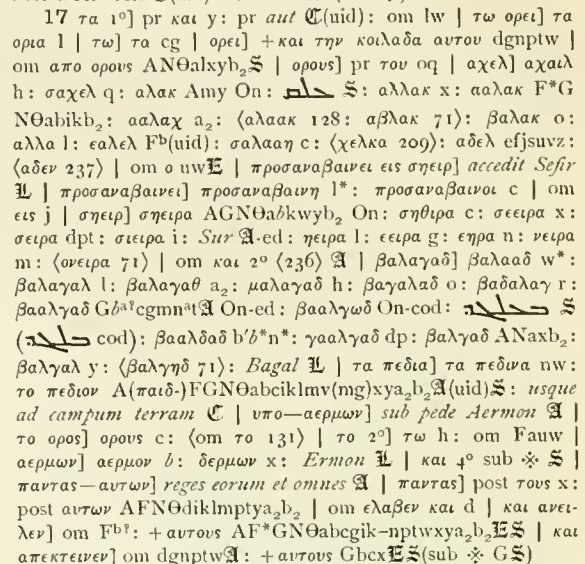 17 τα 1°] pr και y: pr aut 𝕮(uid): om lw | τω ορει] τα
ορια l | τω] τα cg | ορει] + και την κοιλαδα αυτου dgnptw |
om απο ορους ANΘalxyb₂𝕾 | ορους] pr του oq | αχελ] αχαιλ
h: σαχελ q: αλακ Amy On: 𝕾: αλλακ x: ααλακ F*G
NΘabikb₂: ααλαχ a₂: ⟨αλαακ 128: αβλακ 71⟩: βαλακ o:
αλλα l: εαλελ Fᵇ(uid): σαλααη c: ⟨χελκα 209⟩: αδελ efjsuvz:
⟨αδεν 237⟩ | om ο uw𝕰 | προσαναβαινει εις σηειρ] accedit Sefir
𝕷 | προσαναβαινει] προσαναβαινη l*: προσαναβαινοι c | om
εις j | σηειρ] σηειρα AGNΘabkwyb₂ On: σηθιρα c: σεειρα x:
σειρα dpt: σιειρα i: Sur 𝕬-ed: ηειρα l: εειρα g: εηρα n: νειρα
m: ⟨ονειρα 71⟩ | om και 2° ⟨236⟩ 𝕬 | βαλαγαδ] βαλααδ w*:
βαλαγαλ l: βαλαγαθ a₂: μαλαγαδ h: βαγαλαδ o: βαδαλαγ r:
βααλγαδ Gbᵃ?cgmnᵃt𝕬 On-ed: βααλγωδ On-cod: 𝕾
( cod): βααλδαδ b′b*n*: γααλγαδ dp: βαλγαδ ANaxb₂:
βαλγαλ y: ⟨βαλγηδ 71⟩: Bagal 𝕷 | τα πεδια] τα πεδινα nw:
το πεδιον A(παιδ-)FGNΘabciklmv(mg)xya₂b₂𝕬(uid)𝕾: usque
ad campum terram 𝕮 | υπο—αερμων] sub pede Aermon 𝕬 |
το ορος] ορους c: ⟨om το 131⟩ | το 2°] τω h: om Fauw |
αερμων] αερμον b: δερμων x: Ermon 𝕷 | και 4° sub ※ 𝕾 |
παντας—αυτων] reges eorum et omnes 𝕬 | παντας] post τους x:
post αυτων AFNΘdiklmptya₂b₂ | om ελαβεν και d | και ανει-
λεν] om Fᵇ?: + αυτους AF*GNΘabcgik–nptwxya₂b₂𝕰𝕾 | και
απεκτεινεν] om dgnptw𝕬: + αυτους Gbcx𝕰𝕾(sub ※ G𝕾)